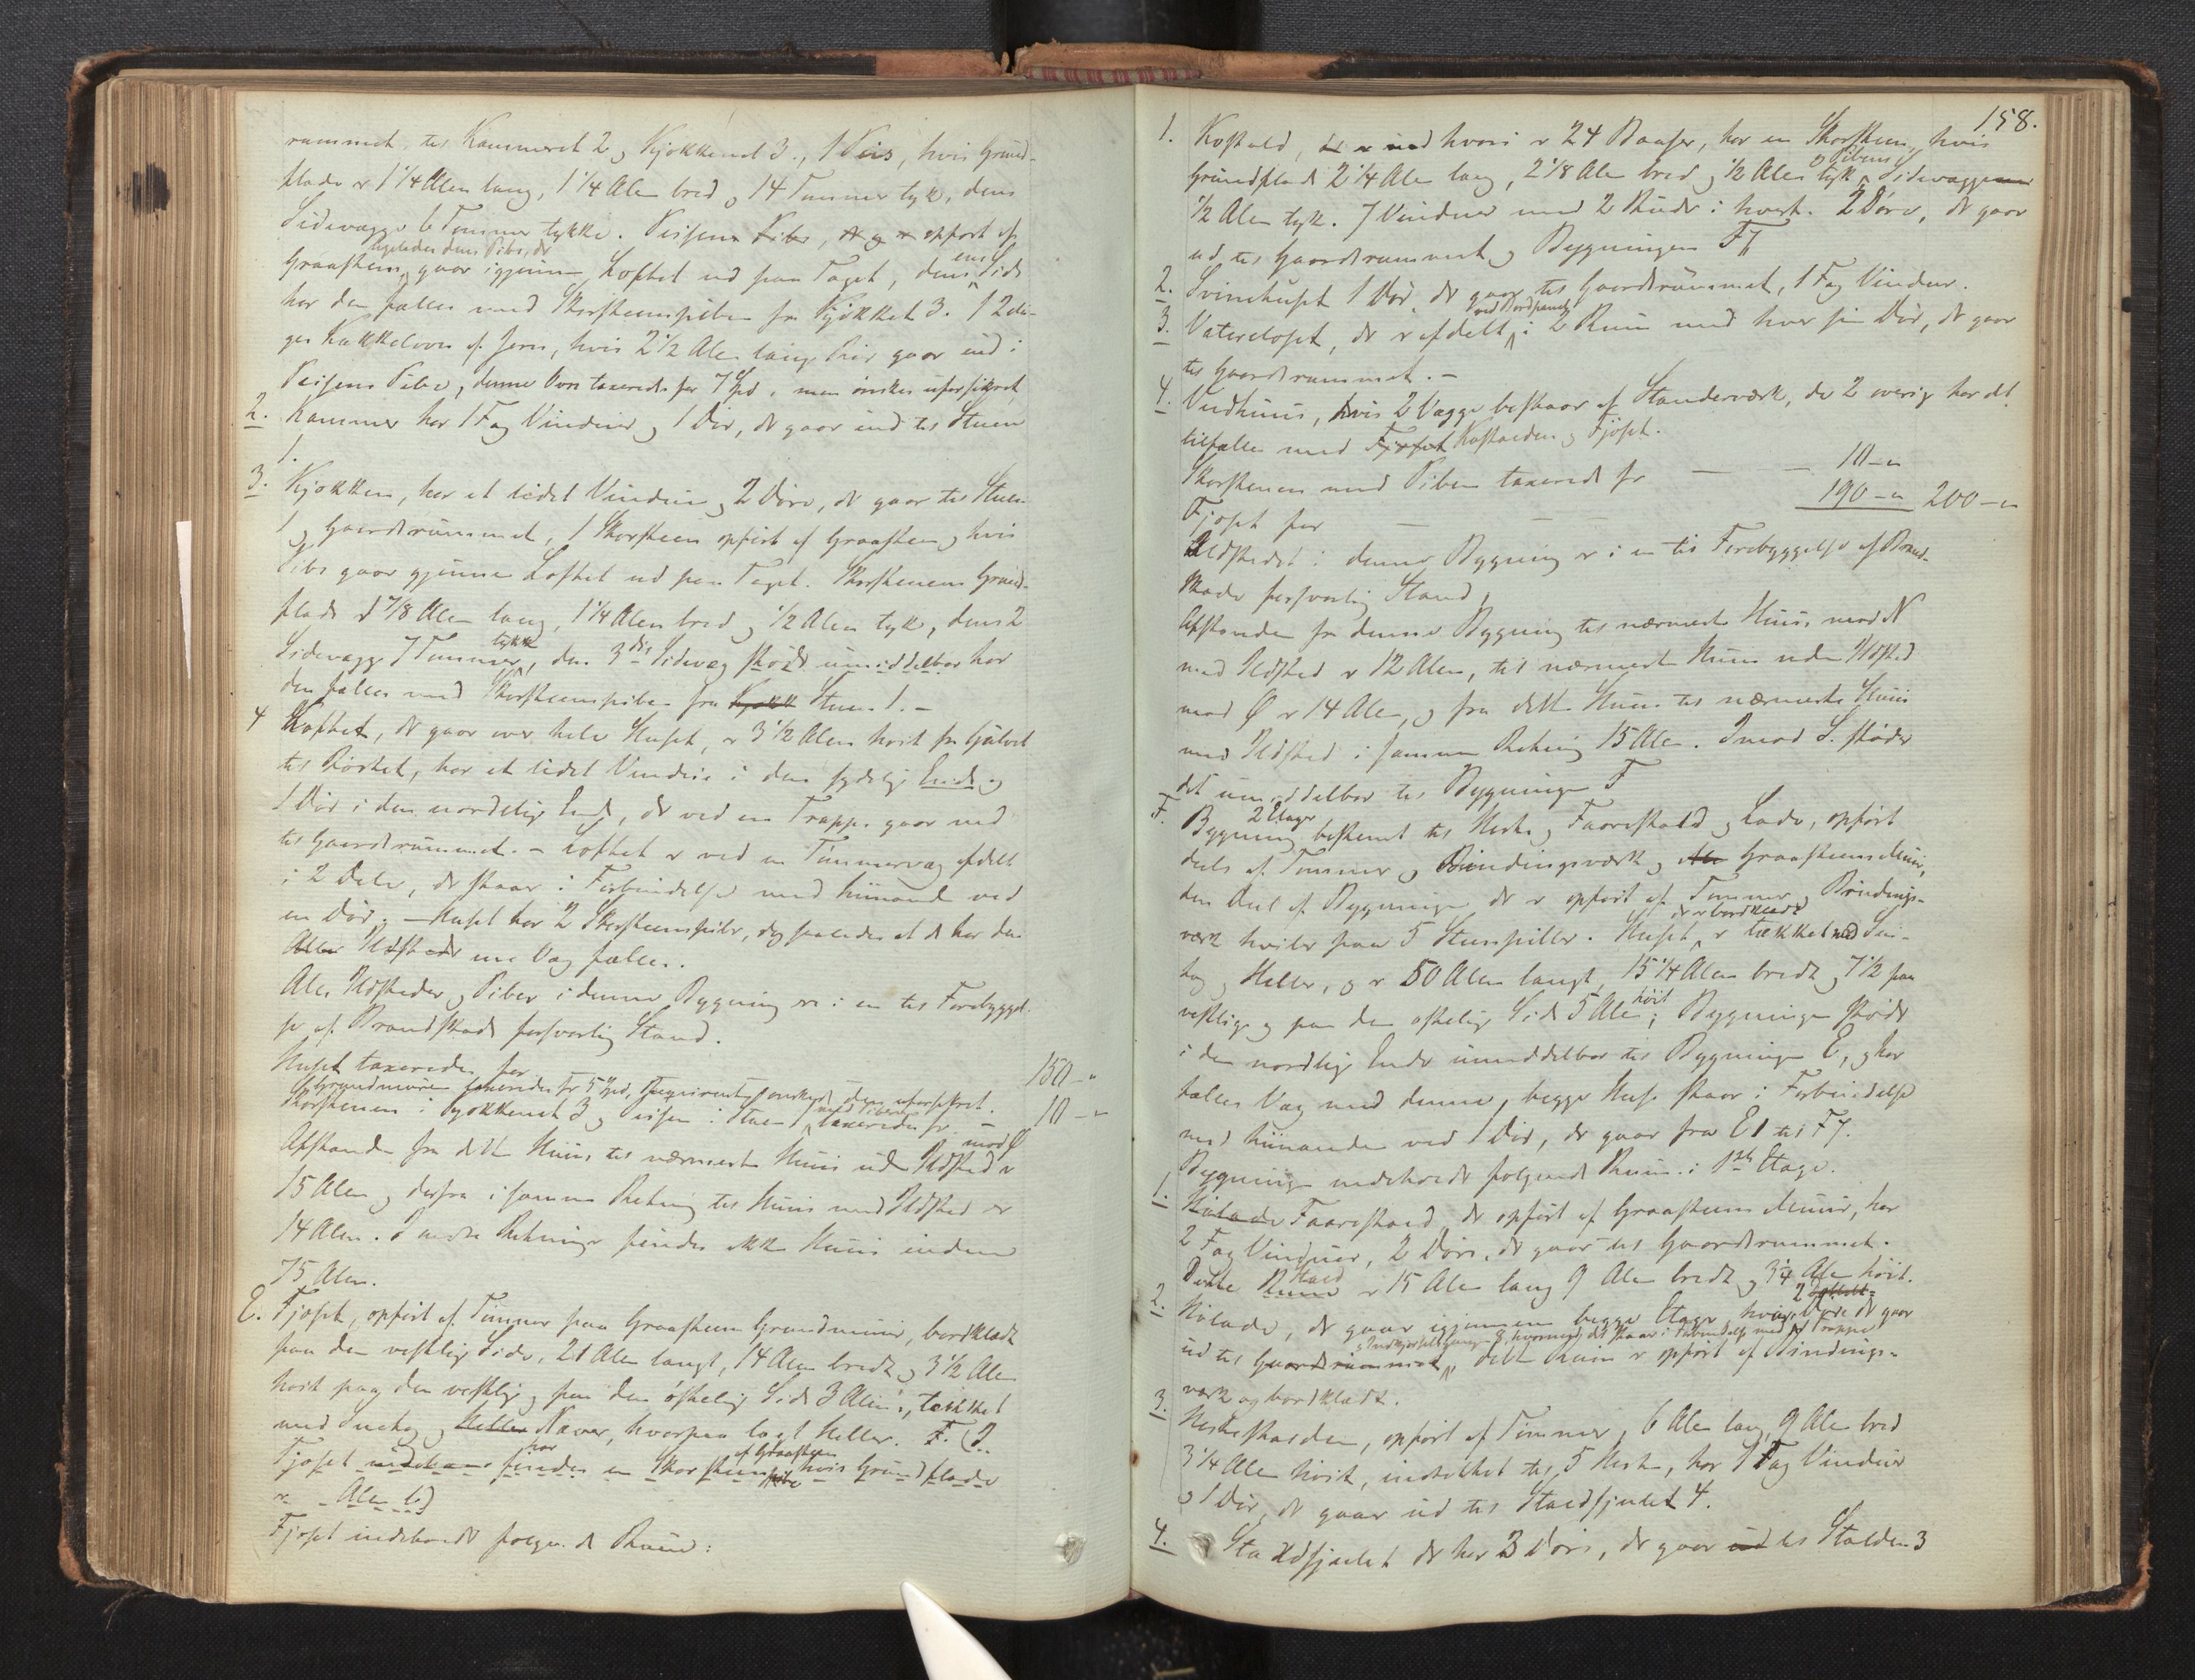 rummet, til Kammeret 2 og Kjøkkenet 3., 1 Peis, hvis Grund-
flade er 1 1/4 Alen lang, 1 1/4 Alen bred og 14 Tommer tyk, dens
Sidevægge 6 Tommer tykke. Peisens Pibe, er opført af
ligeledes dens Pibe, der
Graasteen, gaar igjennem Loftet ud paa Taget, dens ene Side
har den fælles med Skorsteenspiben fra Kjøkket 3. 1 2 eta-
ges Kakkelovn af Jern, hvis 2 1/2 Alen lange Rør gaar ind i
Peisens Pibe, denne Ovn taxeredes for 7 Spd, men ønskes uforsikret,
2. Kammer har 1 Fag Vinduer og 1 Dør, der gaar ind til Stuen
1.
3. Kjøkken, har et lidet Vindue og 2 Døre, der gaar til Stuen
1 og Gaardsrummet, 1 Skorsteen opført af Graasteen og hvis
Pibe gaar gjennem Loftet ud paa Taget. Skorstenens Grund-
flade 1 7/8 Alen lang, 1 1/4 Alen bred og 1/2 Alen tyk, dens 2
Sidevægge 7 Tommer tykke, den 3die Sidevæg støder umiddelbar har
den fælles med Skorsteenspiben fra Kjøkk Stuen 1. -
4 Loftet, der gaar over hele Huset, er 3 1/2 Alen høit fra Gulvet
til Røstet, har et lidet Vindue i den sydlige Ende og
1 Dør i den nordlige Ende, der ved en Trappe gaar ned
til Gaardsrummet. - Loftet er ved en Tømmervæg afdelt
i 2 Dele, der staar i Forbindelse med hinanden ved
en Dør. - Huset har 2 Skorsteenspiber, dog saaledes at de har den
Alle Ildsteder ene Væg fælles.
Alle Ildsteder og Piber i denne Bygning er i en til Forebyggel-
se af Brandskade forsvarlig Stand.
Huset taxeredes for 150 - "
Grundmuren taxeredes for 5 Spd, Reqvirenten ønskede den uforsikret.
Skorstenen i Kjøkkenet 3 og Peisen i Stuen 1 med Piberne taxeredes for - 10 - "
Afstanden fra dette Huus til nærmeste Huus uden Ildsted mod Ø er
15 Alen og derfra i samme Retning til Huus med Ildsted er
14 Alen. I andre Retninger findes ikke Huus inden
75 Alen.
E. Fjøset, opført af Tømmer paa Graasteens Grundmuur, bordklædt
paa den vestlige Side, 21 Alen langt, 14 Alen bredt og 3 1/2 Alen
høit paa den vestlige og paa den østlige Side 3 Alen, tækket
med Suetag og Heller Næver, hvorpaa lagt Heller. F. (I
Fjøset indehave har findes en Skorsteen af Graasteen hvis Grundflade
er - Alen l)
Fjøset indeholder følgende Rum:
158.
1. Kostald, der er med hvori er 24 Baaser, har en Skorsteen, hvis
Grundflade 2 1/4 Alen lang, 2 1/8 Alen bred og 1/2 Alen tyk og Pibens Sidevægge
1/2 Alen tyk. 7 Vinduer med 2 Ruder i hvert. 2 Døre, der gaar
ud til Gaardsrummet og Bygningen F 7
2. Svinehuset 1 Dør, der gaar til Gaardsrummet, 1 Fag Vinduer.
3. Vatercloset, der er afdelt ved Bordpanel i 2 Rum med hver sin Dør, der gaar
til Gaardsrummet. -
4. Vedhuus, hvis 2 Vægge bestaar af Standerværk, de 2 øvrige har det
tilfælles med Fjøset Kostalden og Fjøset.
Skorstenen med Piben taxeredes for - - 10 - "
Fjøset for - - - 190 - " 200 - "
Ildstedet i denne Bygning er i en til Forebyggelse af Brand-
skade forsvarlig Stand,
Afstanden fra denne Bygning til nærmeste Huus mod N
med Ildsted er 12 Alen, til nærmeste Huus uden Ildsted
mod Ø er 14 Alen, og fra dette Huus til nærmeste Huus
med Ildsted i samme Retning 15 Alen. Imod S. støder
det umiddelbar til Bygningen F
F. Bygning 2 Etager bestemt til Heste og Faarestald og Lade, opført
deels af Tømmer og Bindingsværk og Graasteens Muur,
den Deel af Bygningen der er opført af Tømmer og Bindings-
værk hviler paa 5 Steenpiller. Huset, der er bordklædt er tækket med Sue-
tag og Heller, og er 50 Alen langt, 15 1/4 Alen bredt og 7 1/2 paa
vestlige og paa den østlige Side 5 Alen høit; Bygningen støder
i den nordlige Ende umiddelbar til Bygningen E, og har
fælles Væg med denne, begge Huse staar i Forbindelse
med hinanden ved 1 Dør, der gaar fra E 1 til F 7.
Bygningen indeholder følgende Rum: i 1ste Etage.
1. Hølade Faarestald, der opført af Graasteens Muur, har
2 Fag Vinduer, 2 Døre, der gaar til Gaardsrummet.
Dette Rum Stald er 15 Alen lang 9 Alen bredt og 3 1/4 Alen høit.
2. Hølade, der gaar igjennem begge Etager, hvis 2 Døre der gaar
ud til Gaardsrummet og Indkjørselsgangen 8, hvormed det staar i Forbindelse med Trappe, dette Rum er opført af Bindings-
værk og bordklædt.
3. Hestestalden, opført af Tømmer, 6 Alen lang, 9 Alen bred
3 1/4 Alen høit, indrettet til 5 Heste, har 1 Fag Vinduer
og 1 Dør, der gaar ud til Staldfjælet 4.
4. Staldfjælet der har 3 Døre, der gaar ud til Stalden 3